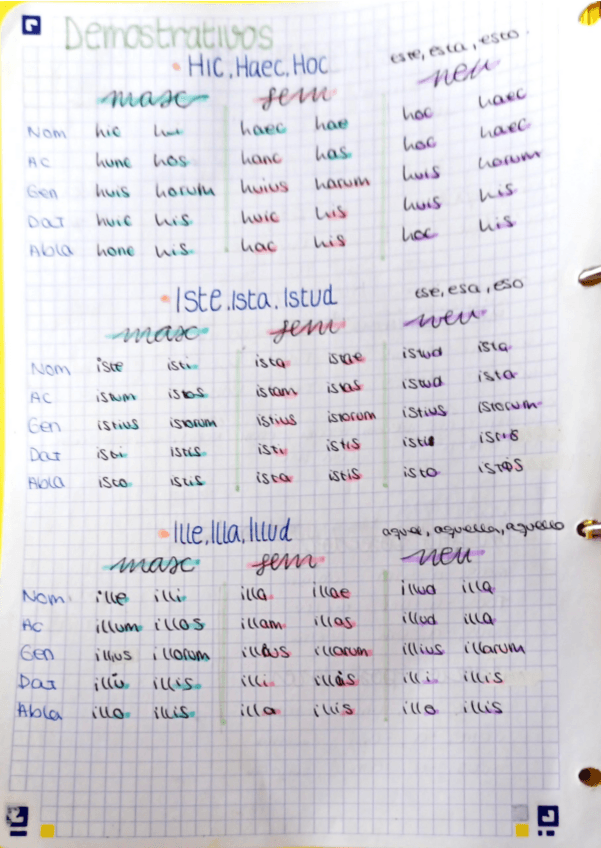 Demostrativos
• Hic, Haec, Hoc este, esta, esto.
masc fem neu
Nom hic hi haec hae hoc haec
AC hunc hos hanc has hoc haec
Gen huis horum huius harum huis horum
Dat huic his huic his huis his
Abla honc his hac his hoc his
• Iste. Ista. Istud ese, esa, eso
masc fem neu
Nom iste isti ista istae istud ista
AC istum istos istam istas istud ista
Gen istius istorum istius istorum istius istorum
Dat isti istis isti istis isti istis
Abla isto istis ista istis isto istis
• Ille, Illa, Illud aquel, aquella, aquello
masc fem neu
Nom ille illi illa illae illud illa
AC illum illos illam illas illud illa
Gen illius illorum illius illarum illius illarum
Dat illi illis illi illis illi illis
Abla illo illis illa illis illo illis